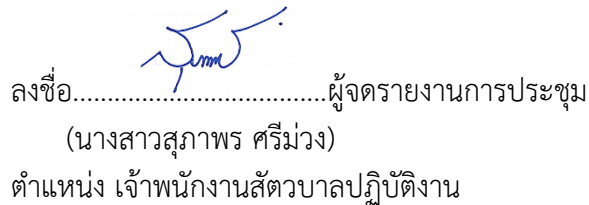 ลงชื่อ.....................................ผู้จดรายงานการประชุม
(นางสาวสุภาพร ศรีม่วง)
ตำแหน่ง เจ้าพนักงานสัตวบาลปฏิบัติงาน